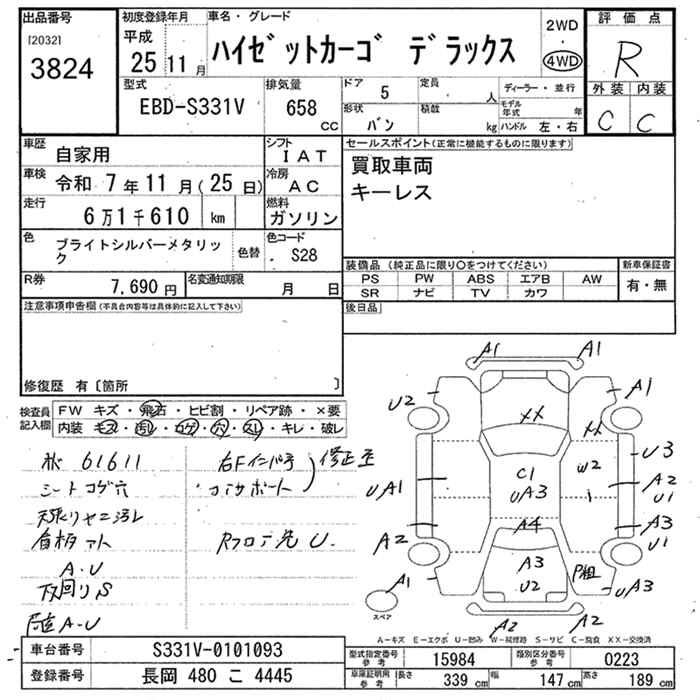 出品番号
[2032]
3824
初度登録年月
平成
25 11月
車名・グレード
ハイゼットカーゴ デラックス
2WD
4WD
評価点
R
外装 内装
C C
型式
EBD-S331V
排気量
658
cc
ドア
5
定員
人
形状
バン
積載
kg
ディーラー・並行
モデル年式
年
ハンドル 左・右
車歴
自家用
シフト
IAT
車検
令和 7年11月(25日)
冷房
AC
走行
6万1千610 km
燃料
ガソリン
色
ブライトシルバーメタリック
色替
色コード
S28
R券
7,690円
名変通知期限
月 日
セールスポイント(正常に機能するものに限ります)
買取車両
キーレス
装備品 (純正品に限り○をつけてください)
新車保証書
PS PW ABS エアB AW
有・無
SR ナビ TV カワ
後日品
注意事項申告欄(不具合内容等は具体的に記入して下さい)
修復歴 有〔箇所 〕
検査員
記入欄
FW キズ・飛石・ヒビ割・リペア跡・×要
内装 キズ・汚れ・コゲ・穴・スレ・キレ・破レ
61611
シートコゲ穴
A・U
下回りS
A-U
右Fインパネ
コアサポート
修正歪
Rフロア先 U.
A1 A1
U2
A1
XX
XX
U3
W2
C1
UA3
UA1
A2
U1
A4
A3
U1
A2
A3
U2
P粗
UA3
A1
スペア
A2
A2
A-キズ E-エクボ U-凹み W-補修跡 S-サビ C-腐食 XX-交換済
車台番号
S331V-0101093
登録番号
長岡 480 こ 4445
型式指定番号
参考
15984
類別区分番号
参考
0223
車庫証明用
参考
長さ
339 cm
幅
147 cm
高さ
189 cm